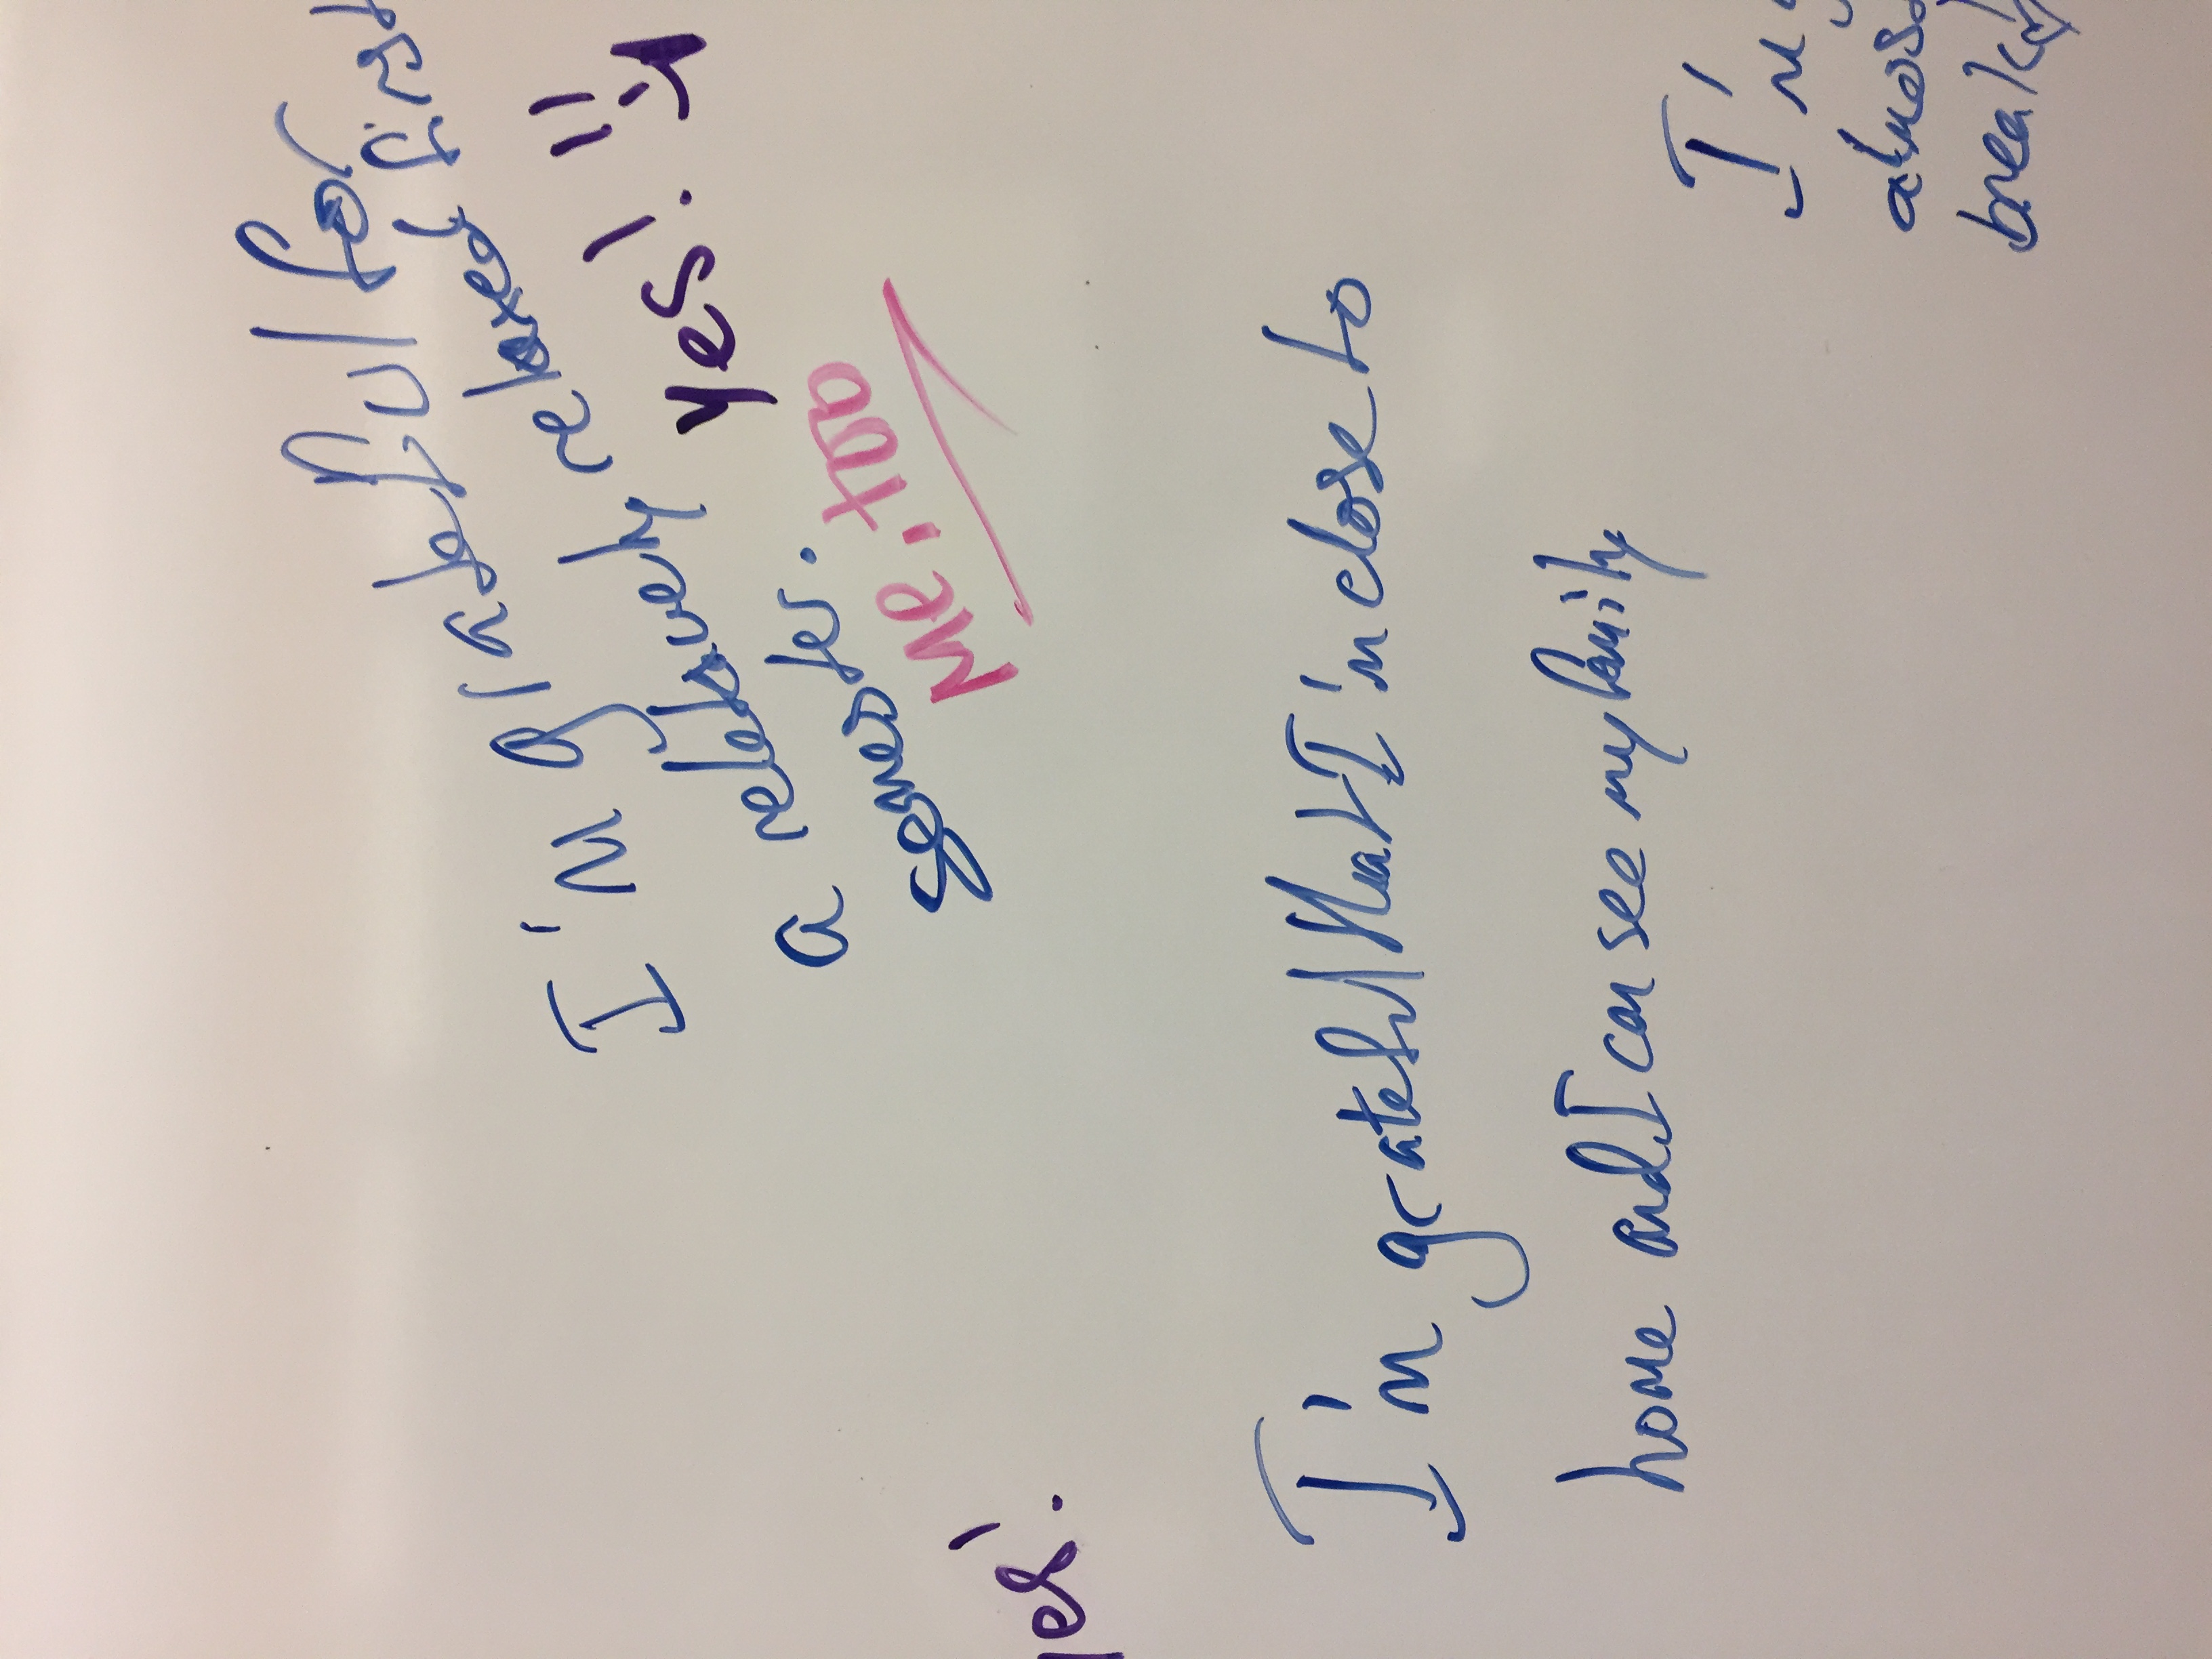 I'm grateful for
a relatively relaxed first
semester.
Yes!
Me, too
I'm grateful that I'm close to
home and I can see my family
I'm
almos
break